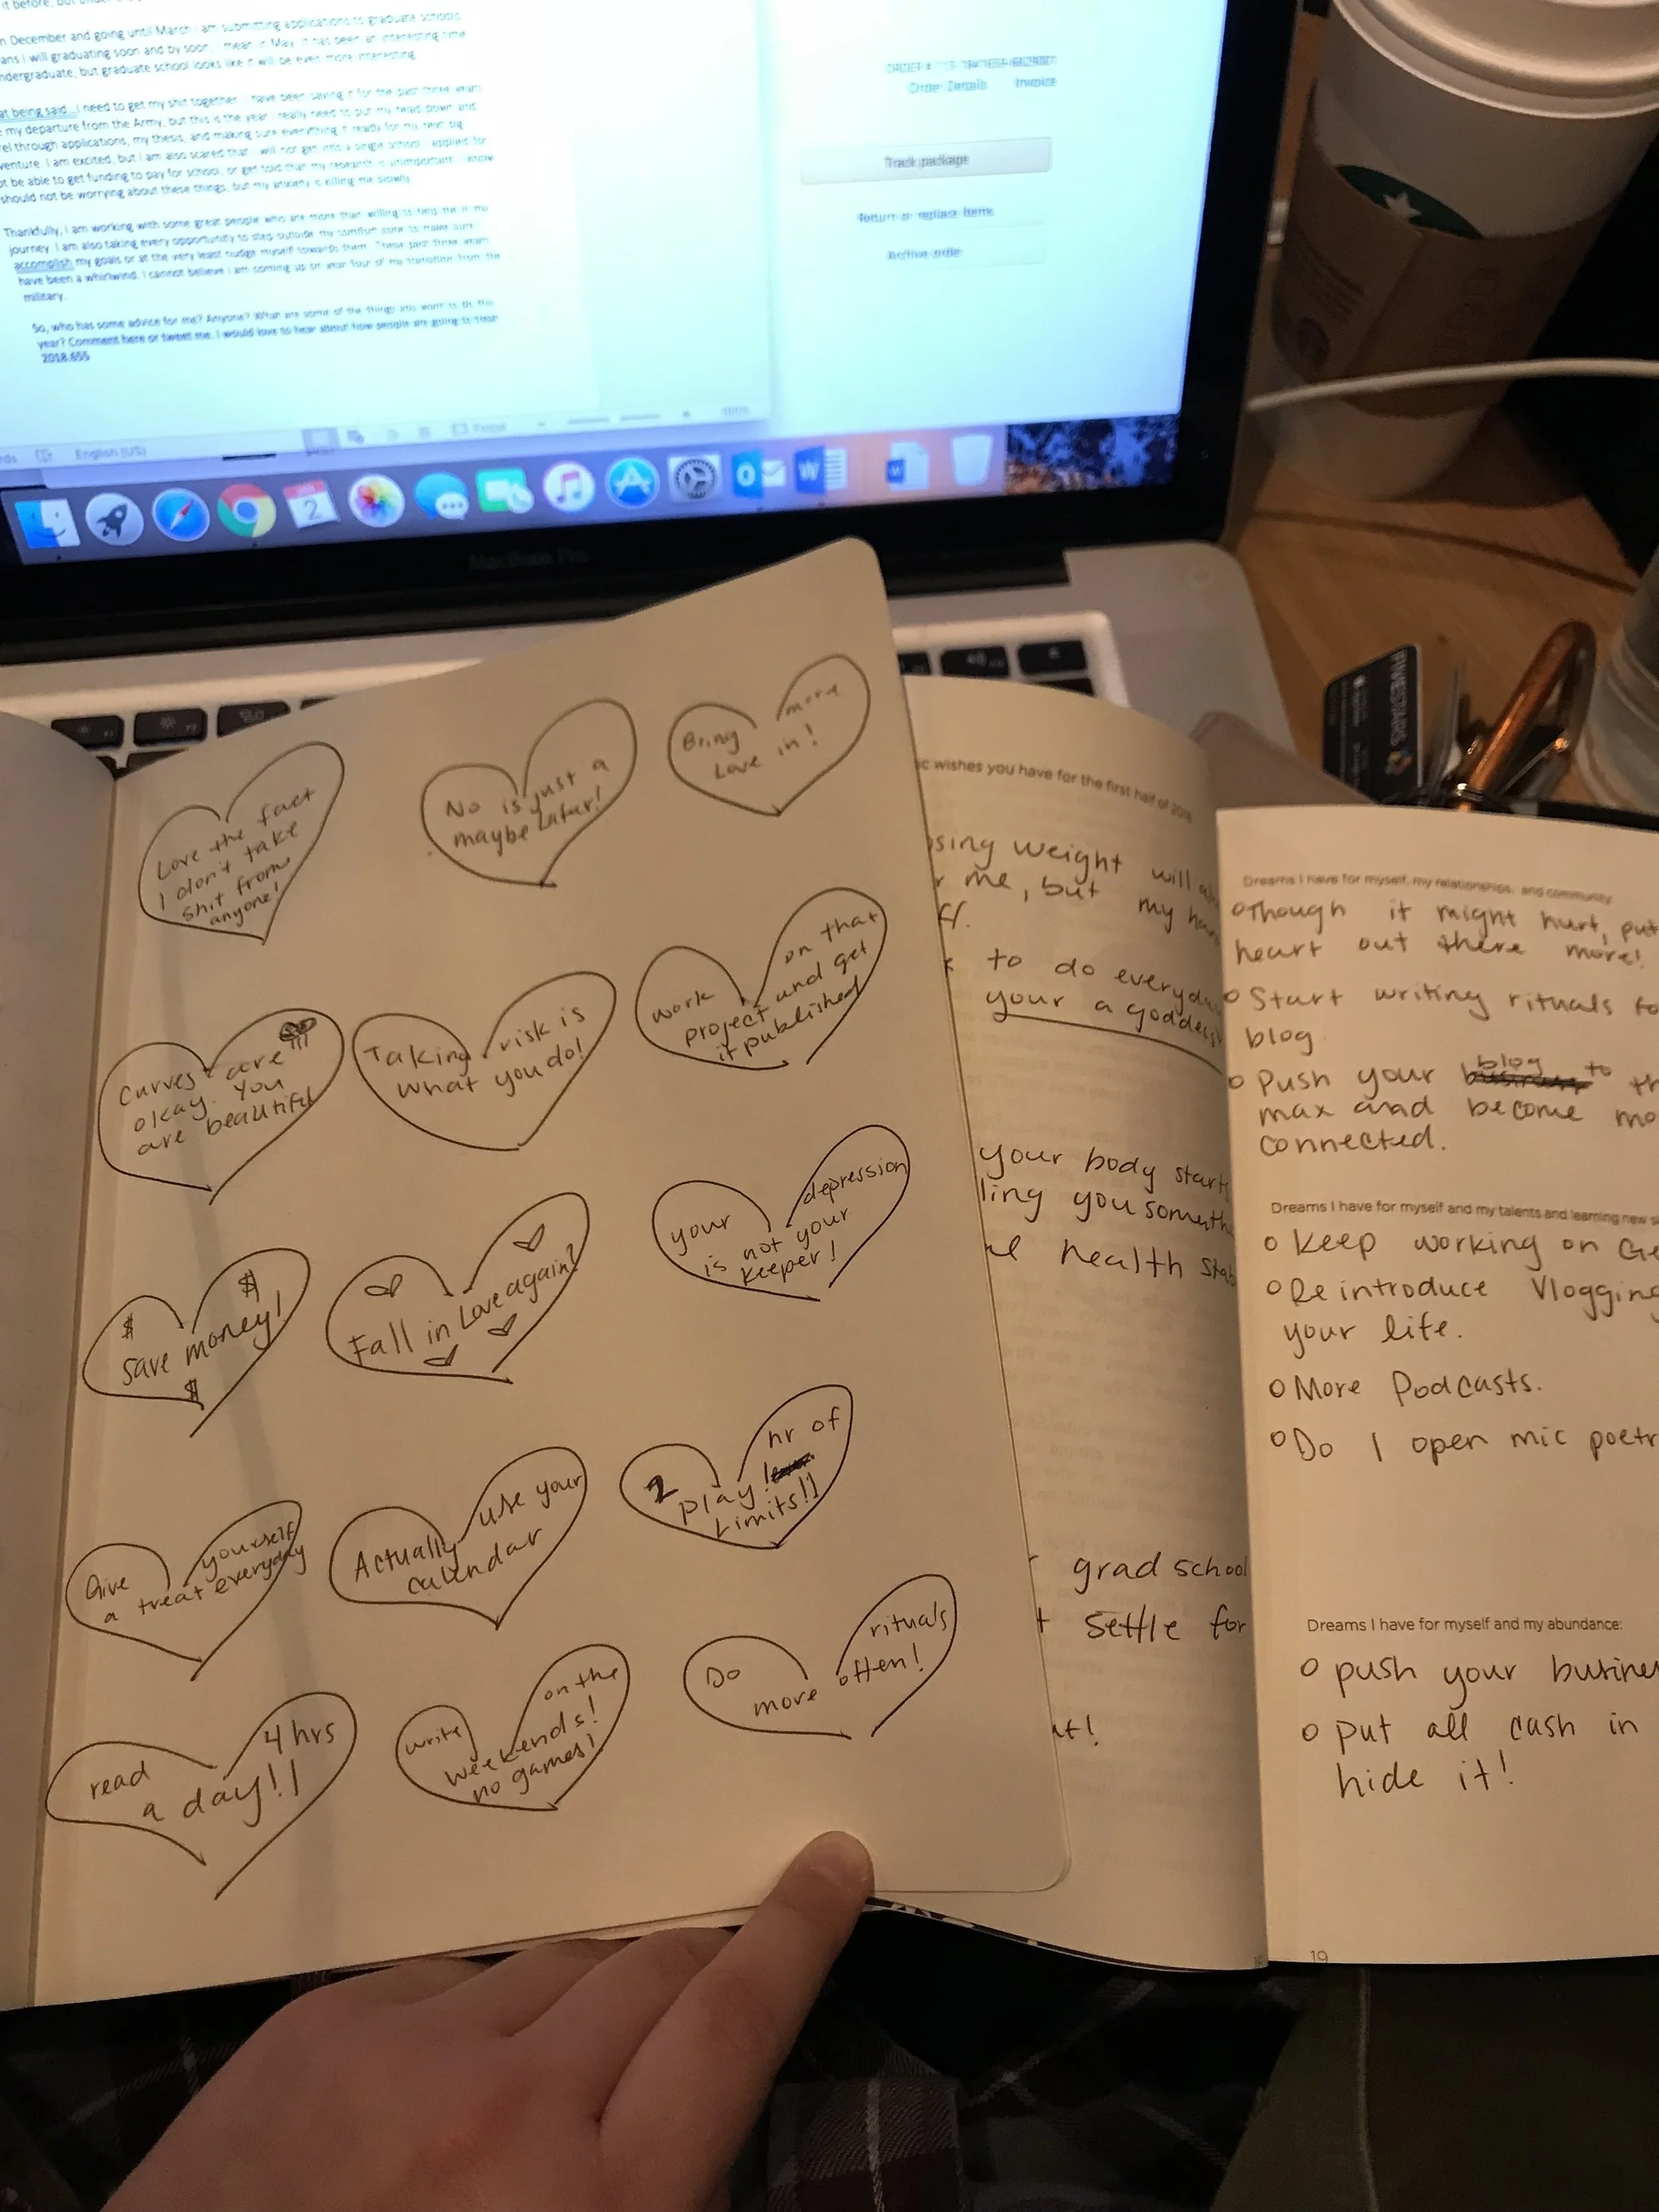 it before, but
n December and going until March I am submitting applications to graduate schools
ans I will graduating soon and by soon, I mean in May. It has been an interesting time
ndergraduate, but graduate school looks like it will be even more interesting.
at being said...I need to get my shit together. I have been saying it for the past three years
my departure from the Army, but this is the year I really need to put my head down and
rel through applications, my thesis, and making sure everything is ready for my next big
venture. I am excited, but I am also scared that I will not get into a single school I applied for
ot be able to get funding to pay for school, or get told that my research is unimportant. I know
should not be worrying about these things, but my anxiety is killing me slowly.
Thankfully, I am working with some great people who are more than willing to help me in my
journey. I am also taking every opportunity to step outside my comfort zone to make sure I
accomplish my goals or at the very least nudge myself towards them. These past three years
have been a whirlwind. I cannot believe I am coming up on year four of my transition from the
military.
So, who has some advice for me? Anyone? What are some of the things you want to do this
year? Comment here or tweet me. I would love to hear about how people are going to treat
2018.655
ORDER #
Order Details Invoice
Track package
Return or replace items
Archive order
rds English (US) Focus
2
MacBook Pro
Love the fact
I don't take
shit from
anyone!
No is just a
maybe Later!
Bring more
Love in!
Curves are
okay. you
are beautiful
Taking risk is
what you do!
work on that
project and get
it published
$ $
Save money!
$
Fall in Love again?
your depression
is not your
keeper!
Give yourself
a treat everyday
Actually use your
calendar
2 hr of
play!
Limits!!
read 4 hrs
a day!!
write on the
weekends!
no games!
Do rituals
more often!
c wishes you have for the first half of 2018
sing weight will
me, but my
to do everyday
your a goddess
your body starts
ling you someth
health
grad school
settle for
t!
Dreams I have for myself, my relationships, and community
Though it might hurt, put
heart out there more!
Start writing rituals fo
blog
Push your blog to th
max and become mo
connected.
Dreams I have for myself and my talents and learning new s
Keep working on Ge
Re introduce Vlogging
your life.
More Podcasts.
Do 1 open mic poetr
Dreams I have for myself and my abundance:
push your busine
put all cash in
hide it!
19